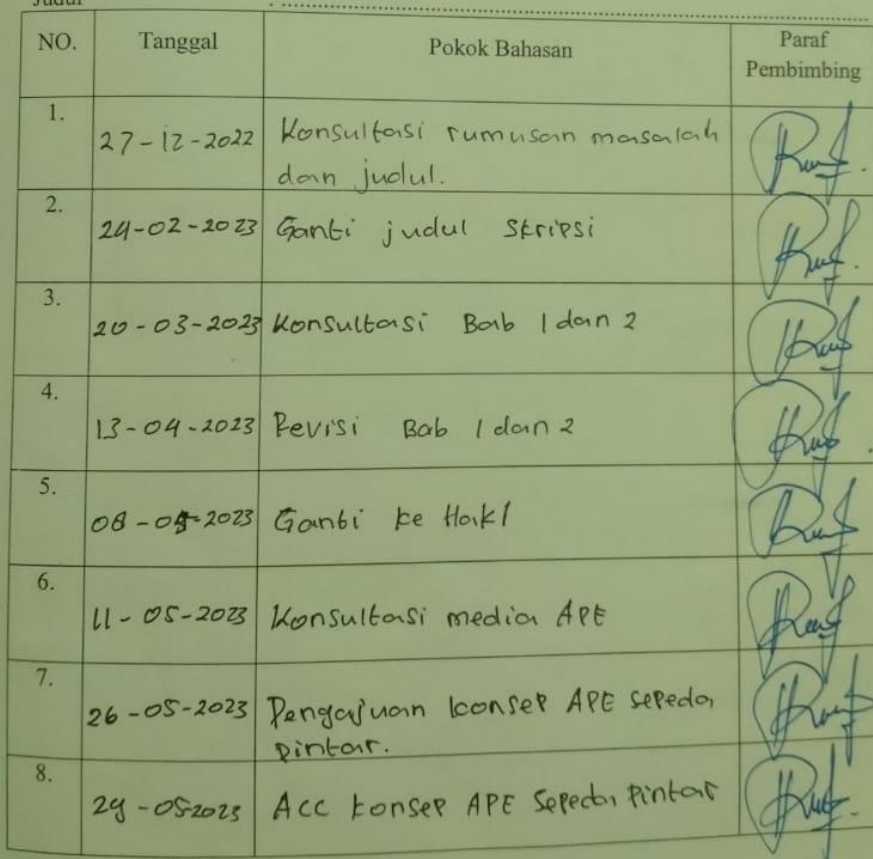 Judul : ..........
NO. Tanggal Pokok Bahasan Paraf
Pembimbing
1. 27-12-2022 Konsultasi rumusan masalah
dan judul.
2. 24-02-2023 Ganti judul skripsi
3. 20-03-2023 Konsultasi Bab 1 dan 2
4. 13-04-2023 Revisi Bab 1 dan 2
5. 08-05-2023 Ganti ke HakI
6. 11-05-2023 Konsultasi media APE
7. 26-05-2023 Pengajuan konsep APE sepeda
pintar.
8. 29-05-2023 Acc konsep APE Sepeda Pintar